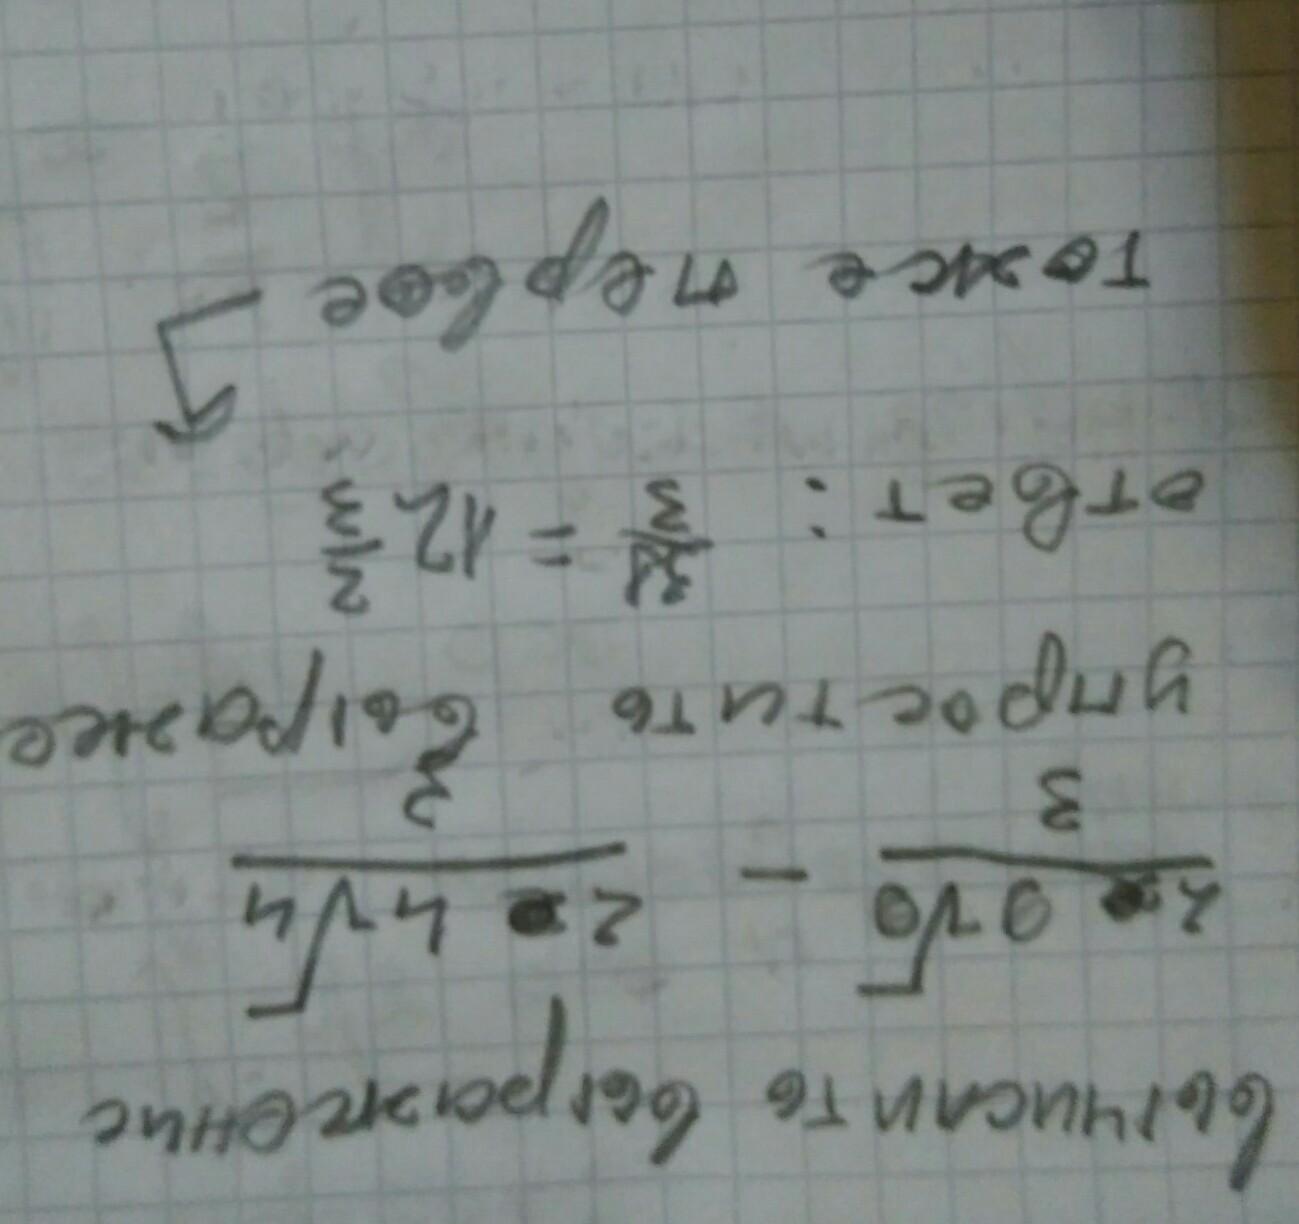 вычислить выражение
2 · 9√9 / 3 − 2 · 4√4 / 3
упростить выраже
ответ: 38/3 = 12 2/3
тоже первое